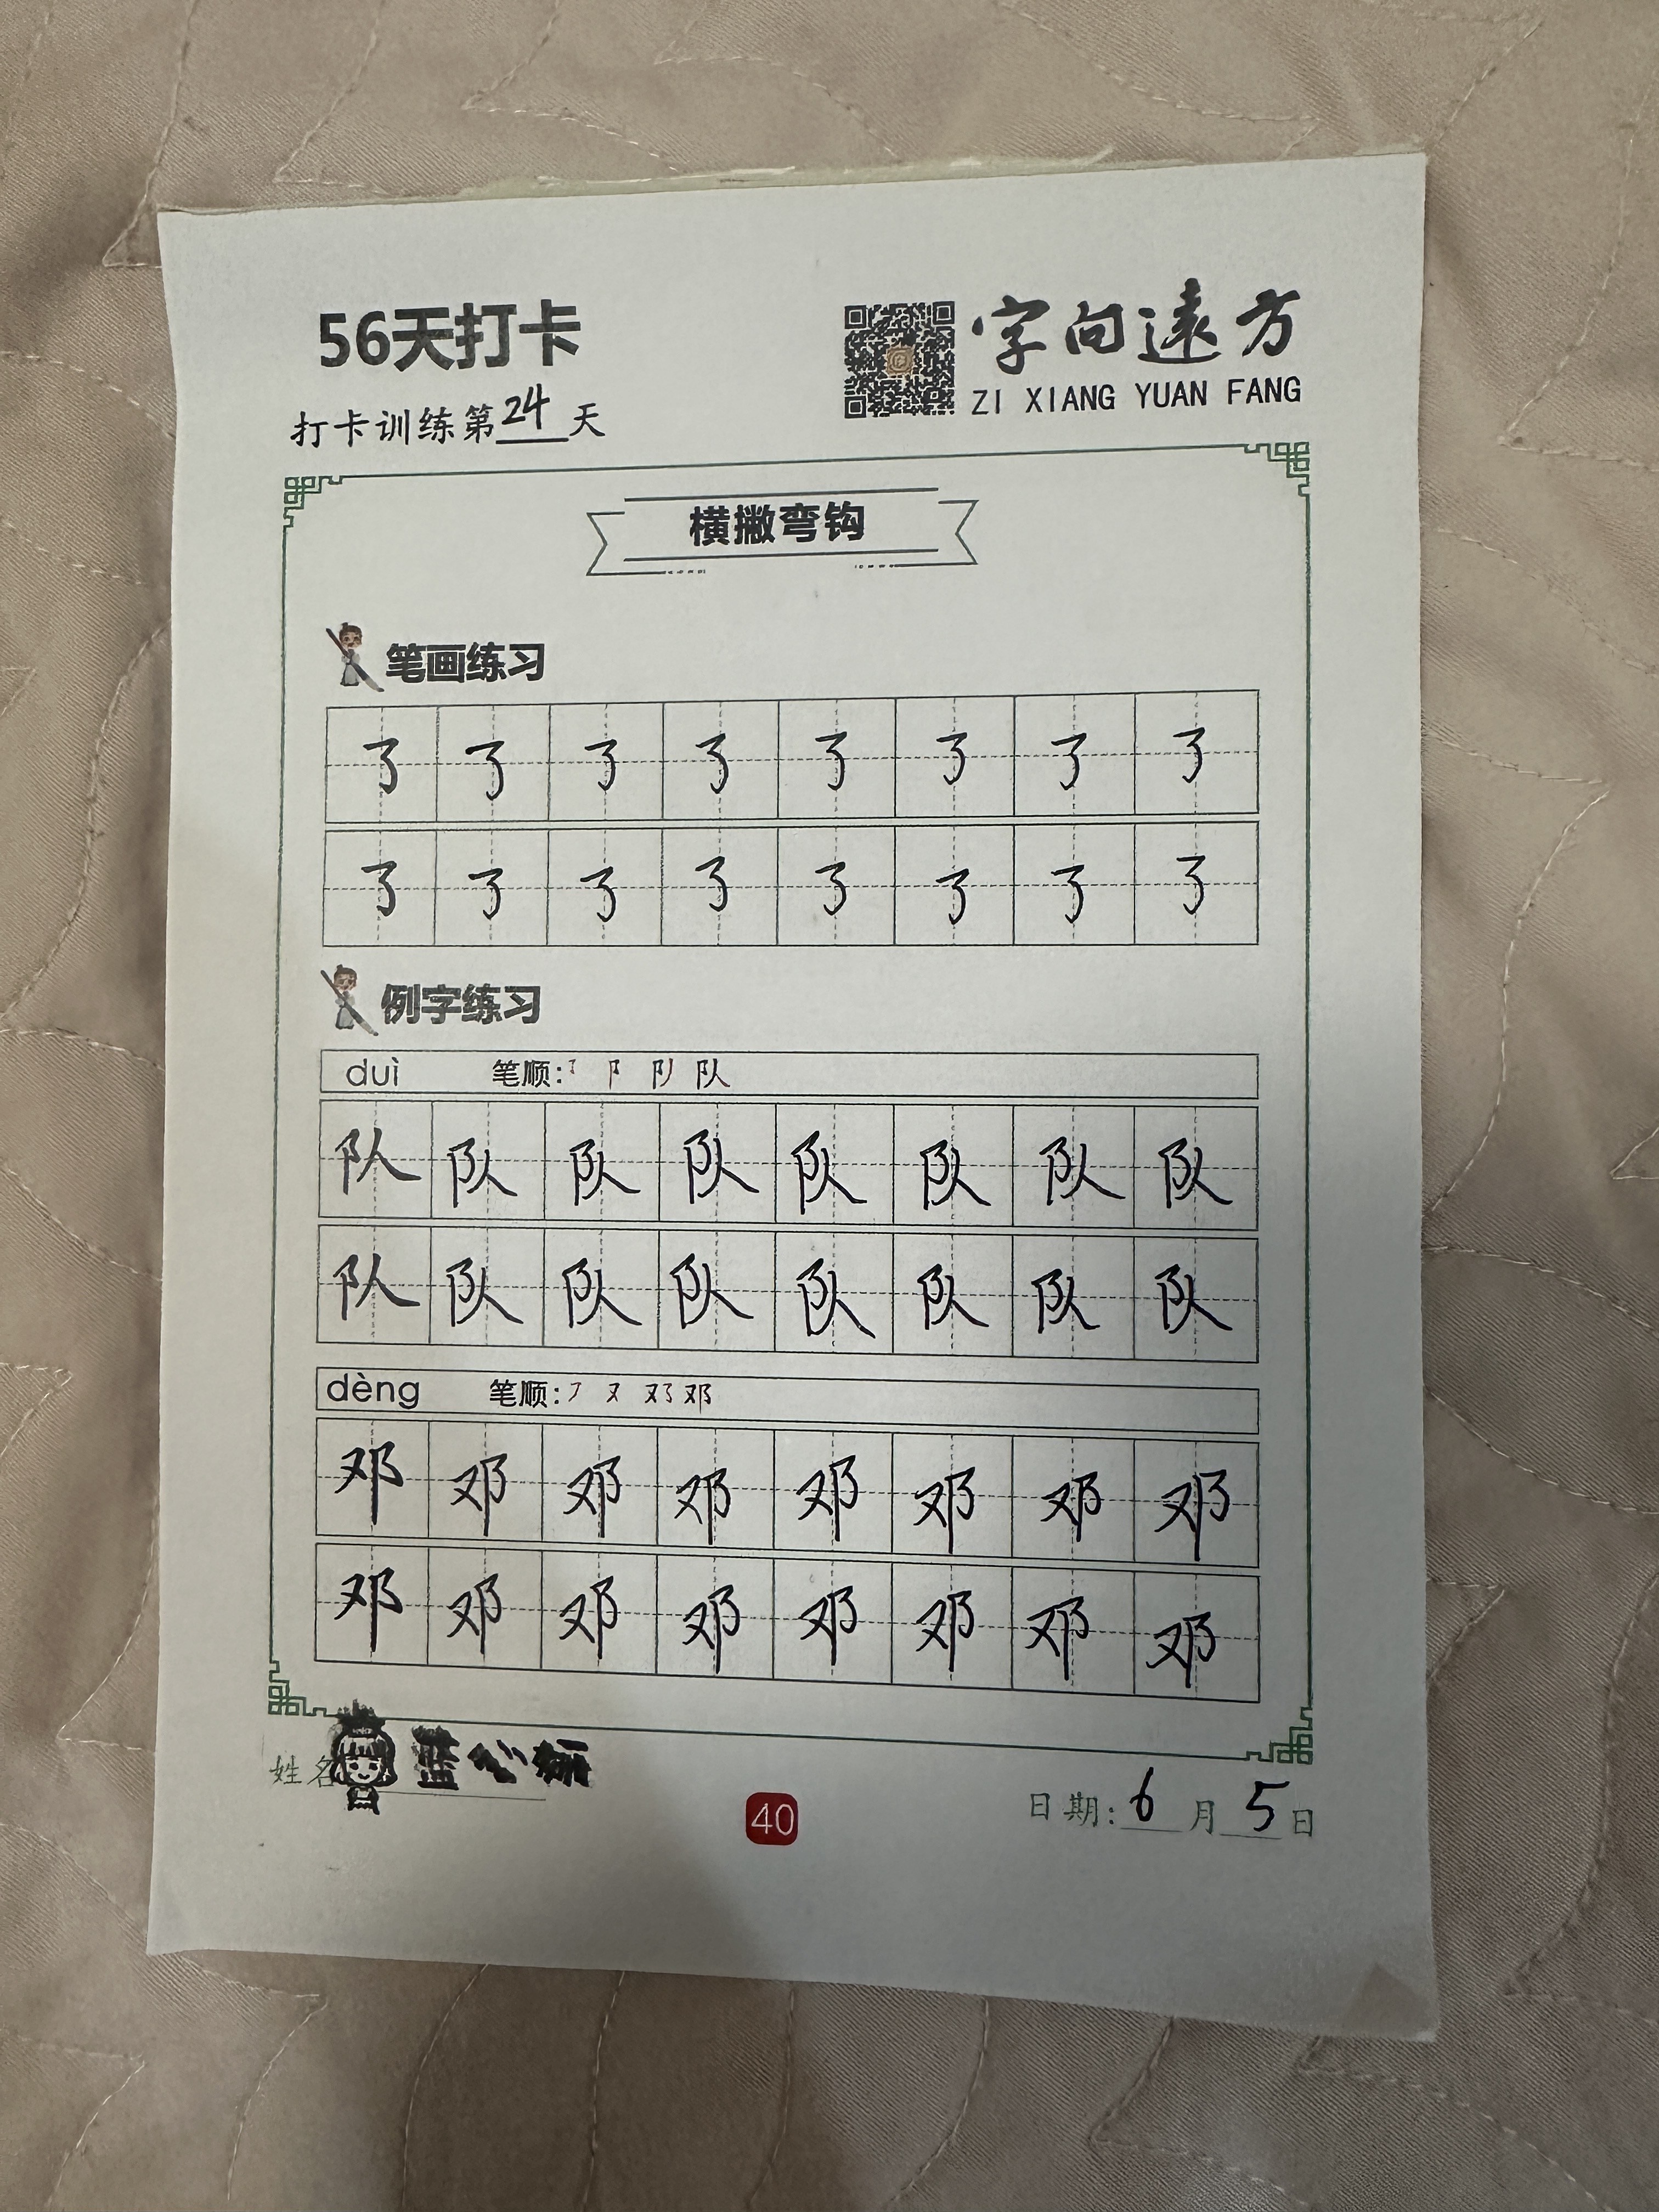 56天打卡
字向遠方
ZI XIANG YUAN FANG
打卡训练第24天
横撇弯钩
笔画练习
例字练习
duì 笔顺: 队
队 队 队 队 队 队 队 队
队 队 队 队 队 队 队 队
dèng 笔顺: 又 邓
邓 邓 邓 邓 邓 邓 邓 邓
邓 邓 邓 邓 邓 邓 邓 邓
姓名
40
日期: 6 月 5 日